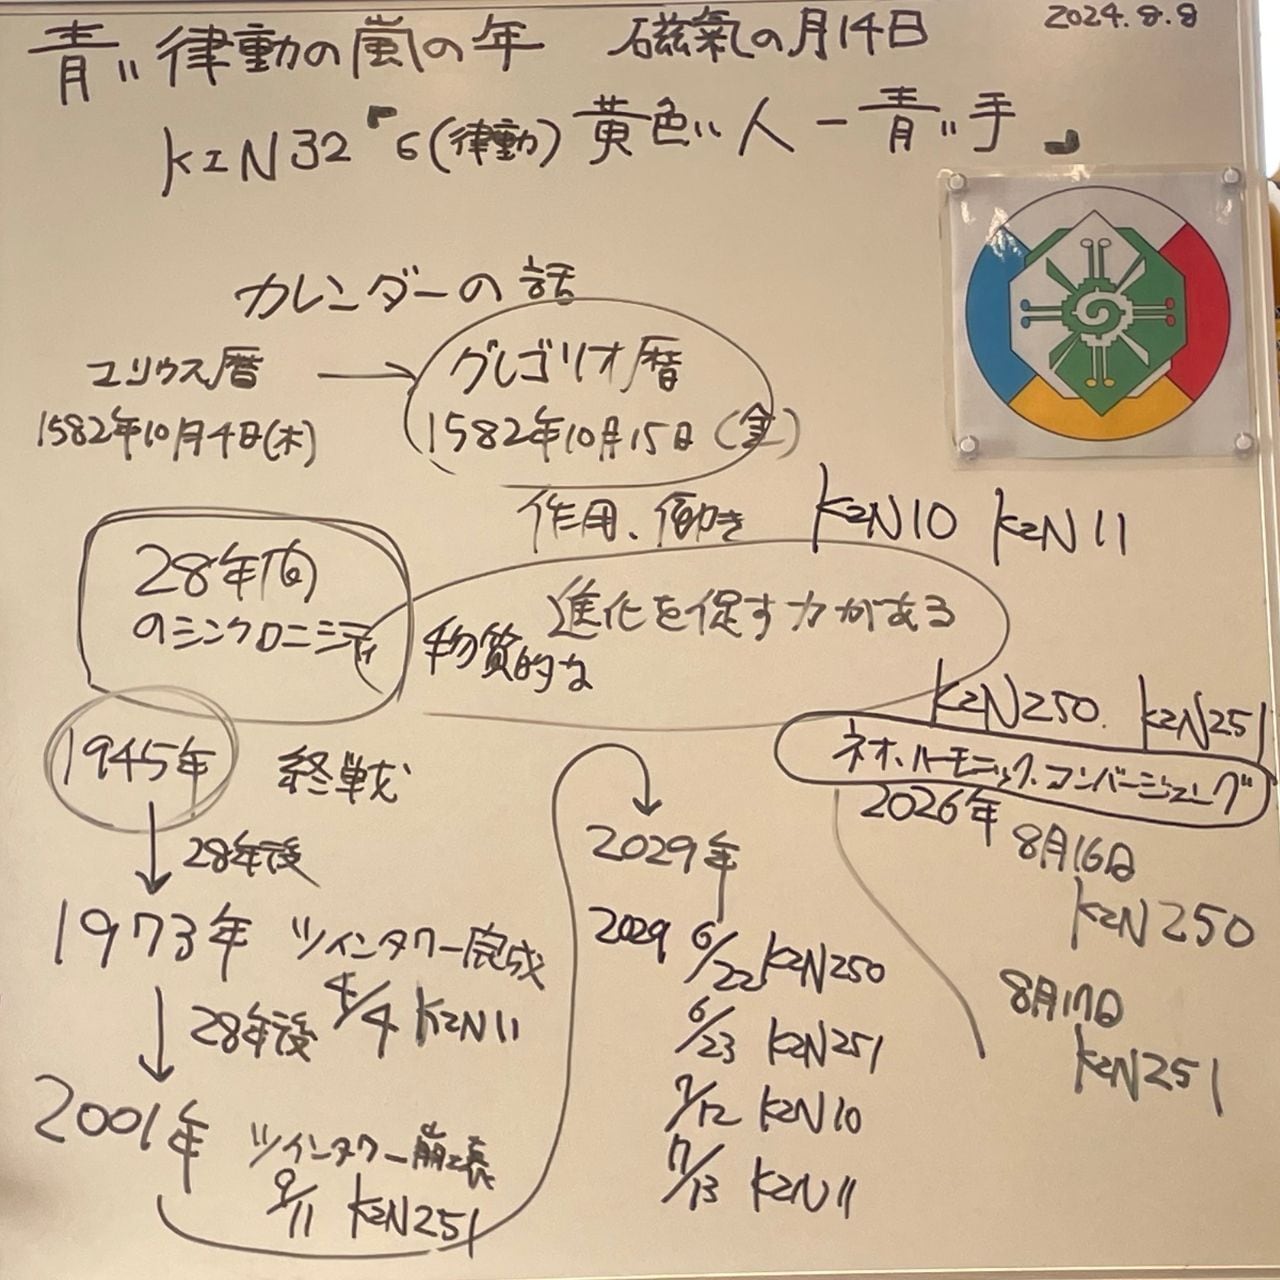 青い律動の嵐の年 磁氣の月14日 2024.8.8
KIN32「6(律動)黄色い人ー青い手」
カレンダーの話
ユリウス暦 → グレゴリオ暦
1582年10月4日(木) 1582年10月15日(金)
作用、働き KIN10 KIN11
28年間
のシンクロニシティ
進化を促す力がある
物質的な
KIN250. KIN251
ネオ・ハーモニック・コンバージェンス
1945年 終戦
↓ 28年後
1973年 ツインタワー完成
4/4 KIN11
↓ 28年後
2001年 ツインタワー崩壊
9/11 KIN251
2029年
2029 6/22 KIN250
6/23 KIN251
7/12 KIN10
7/13 KIN11
2026年
8月16日
KIN250
8月17日
KIN251